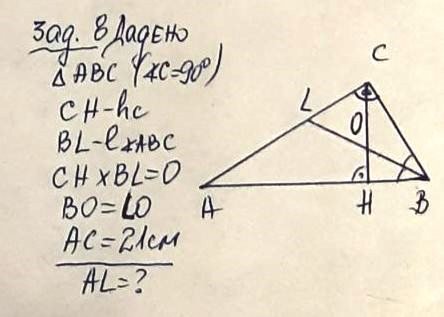 Зад. 8 Дадено
△ABC (∢C=90°)
CH-hc
BL-l∢ABC
CH x BL=O
BO=LO
AC=21см
AL=?
C
L
O
A
H
B